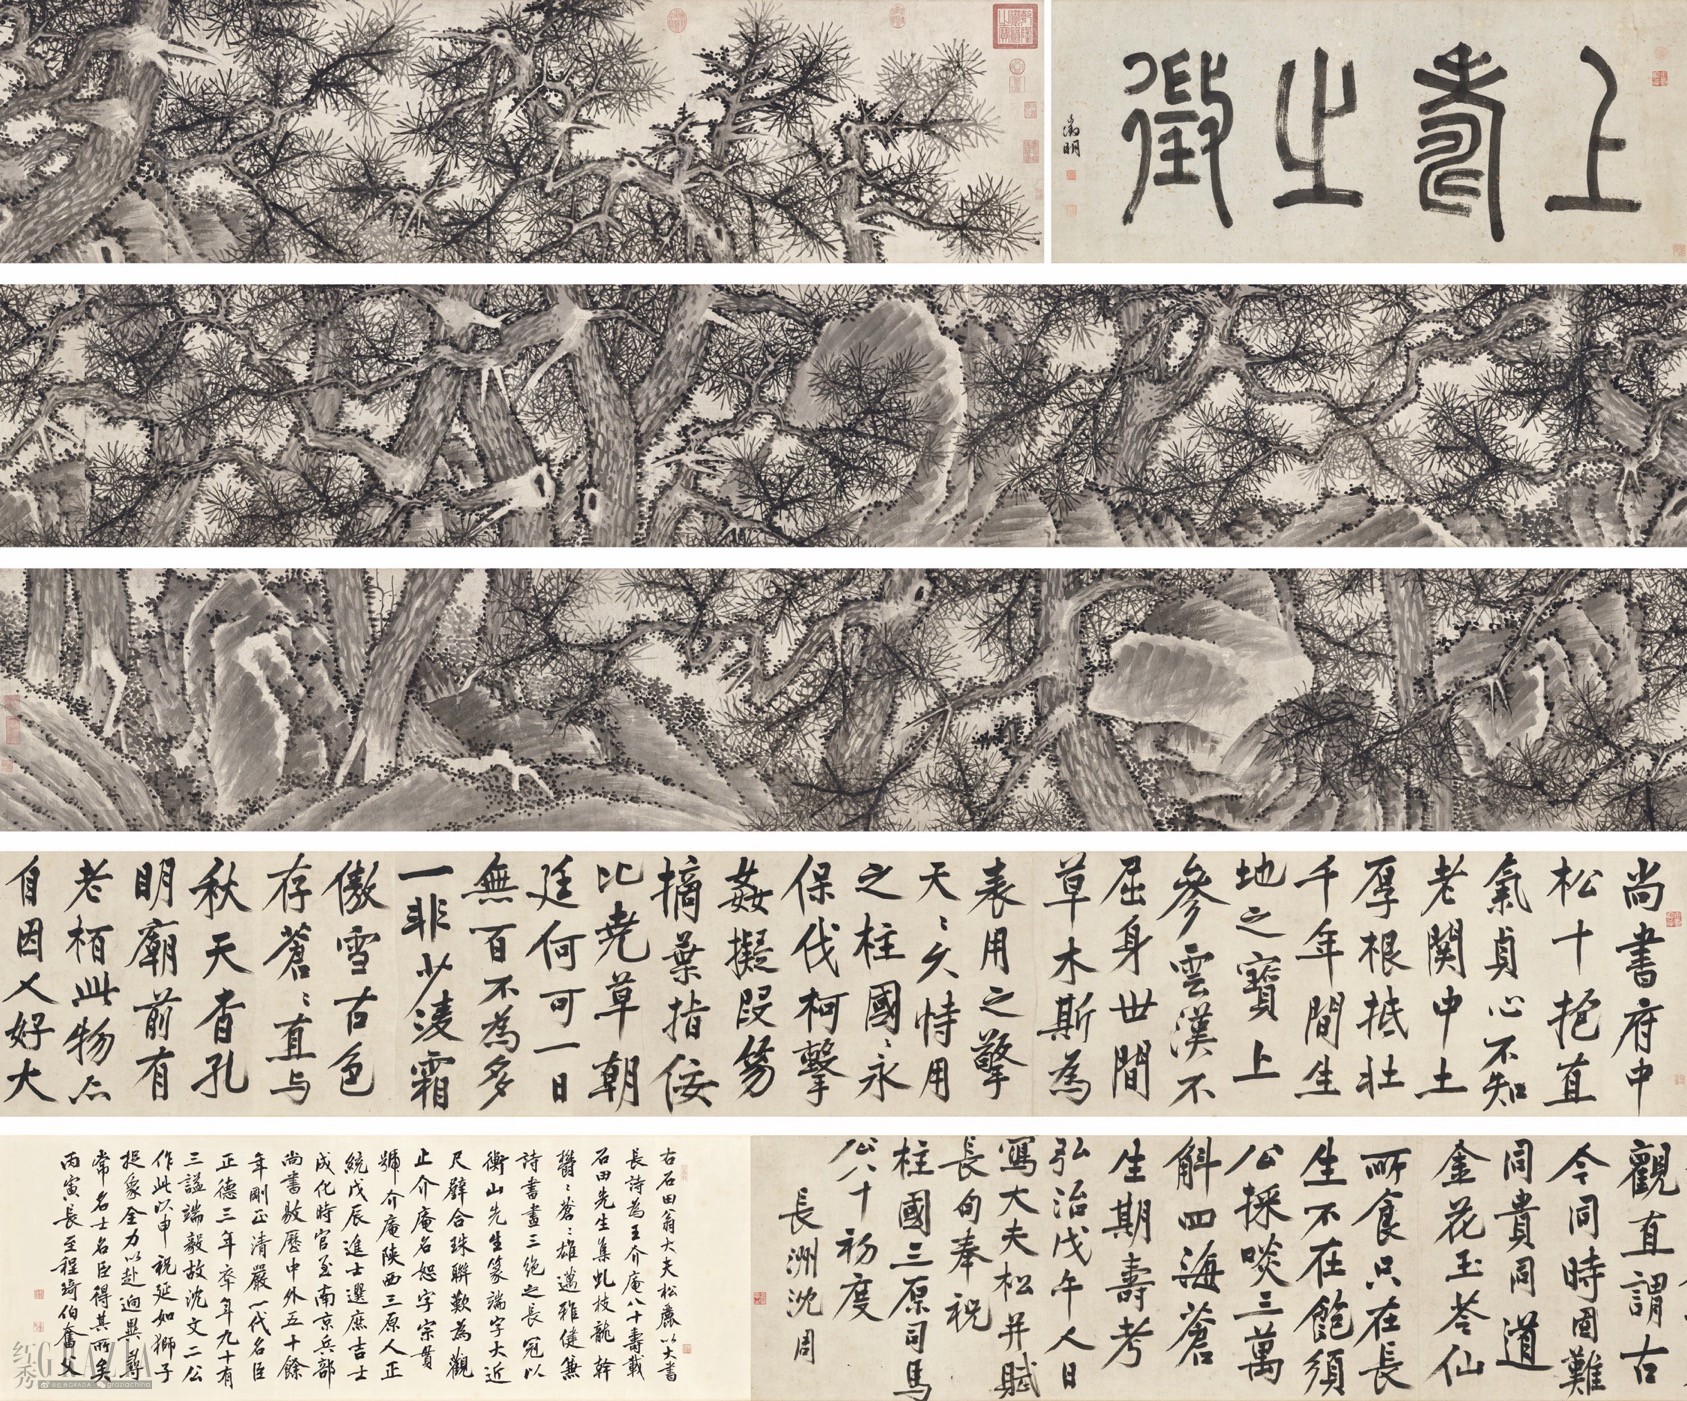 上壽之徵
徵明
尚書府中
松十抱直
氣貞心不知
老關中土
厚根抵壯
千年間生
地之寶上
參雲漢不
屈身世間
草木斯為
表用之擎
天〻久恃用
之柱國〻永
保伐柯擊
姦擬段笏
摘葉指佞
比堯草朝
廷何可一日
無百不為多
一非少淩霜
傲雪古色
存蒼〻直与
秋天杳孔
明廟前有
老栢此物亦
自因人好大
觀直謂古
今同時固難
同貴同道
金花玉苓仙
所食只在長
生不在飽須
公採啖三萬
斛四海蒼
生期壽考
弘治戊午人日
寫大夫松并賦
長句奉祝
柱國三原司馬
公八十初度
長洲沈周
右石田翁大夫松麄以大書
長詩為王介庵八十壽載
石田先生集虬枝龍幹
鬱〻蒼〻雄邁雅健兼
詩書畫三絶之長冠以
衡山先生篆端字大近
尺璧合珠聯歎為觀
止介庵名恕字宗貫
號介庵陕西三原人正
統戊辰進士選庶吉士
成化時官至南京兵部
尚書敭歷中外五十餘
年剛正清嚴一代名臣
正德三年卒年九十有
三謚端毅故沈文二公
作此以申祝延如獅子
捉象全力以赴迥異尋
常名士名臣得其所矣
丙寅長至程琦伯奮父
红秀GRAZIA